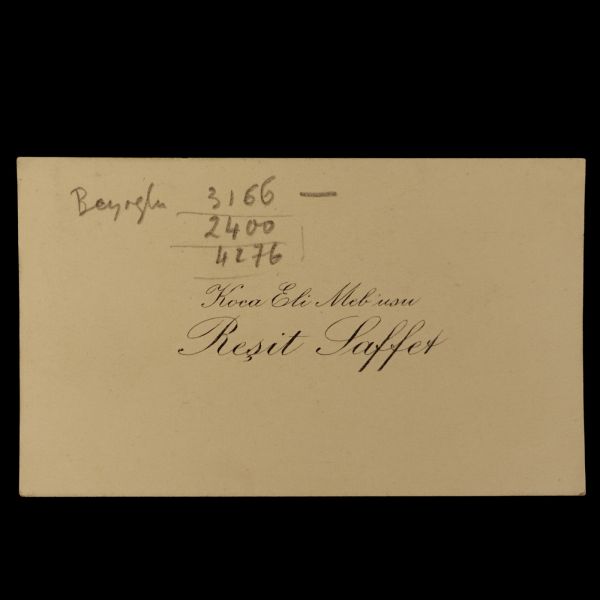 Beyoglu 3166 —
2400
4276
Koca Eli Meb'usu
Reşit Saffet